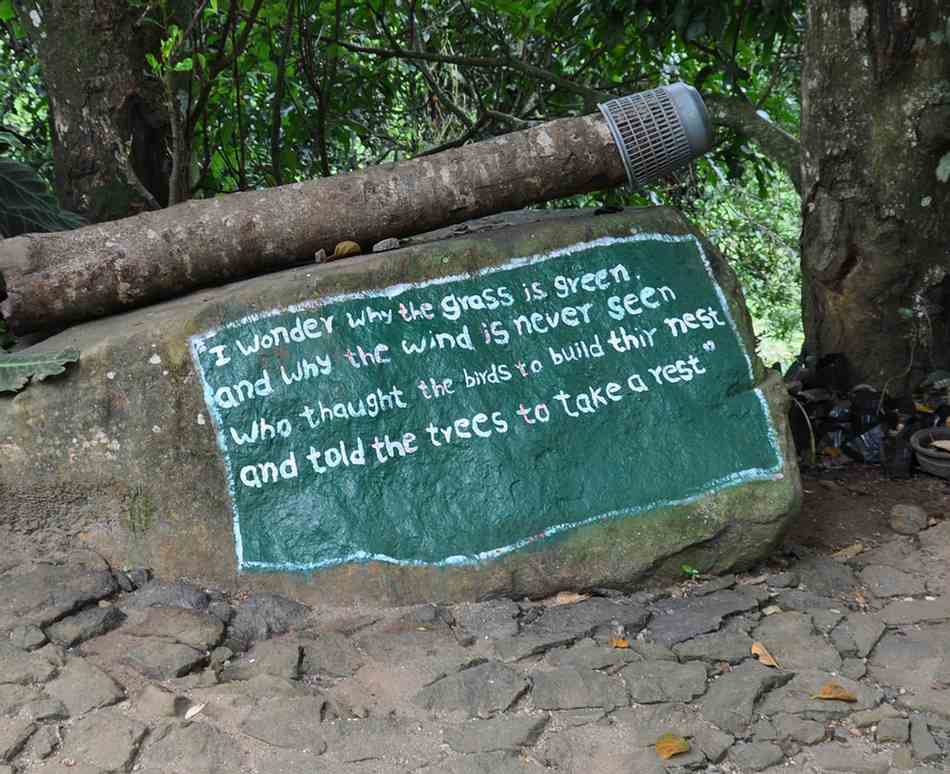 "I wonder why the grass is green.
and why the wind is never seen
who thaught the birds to build thir nest
and told the trees to take a rest"